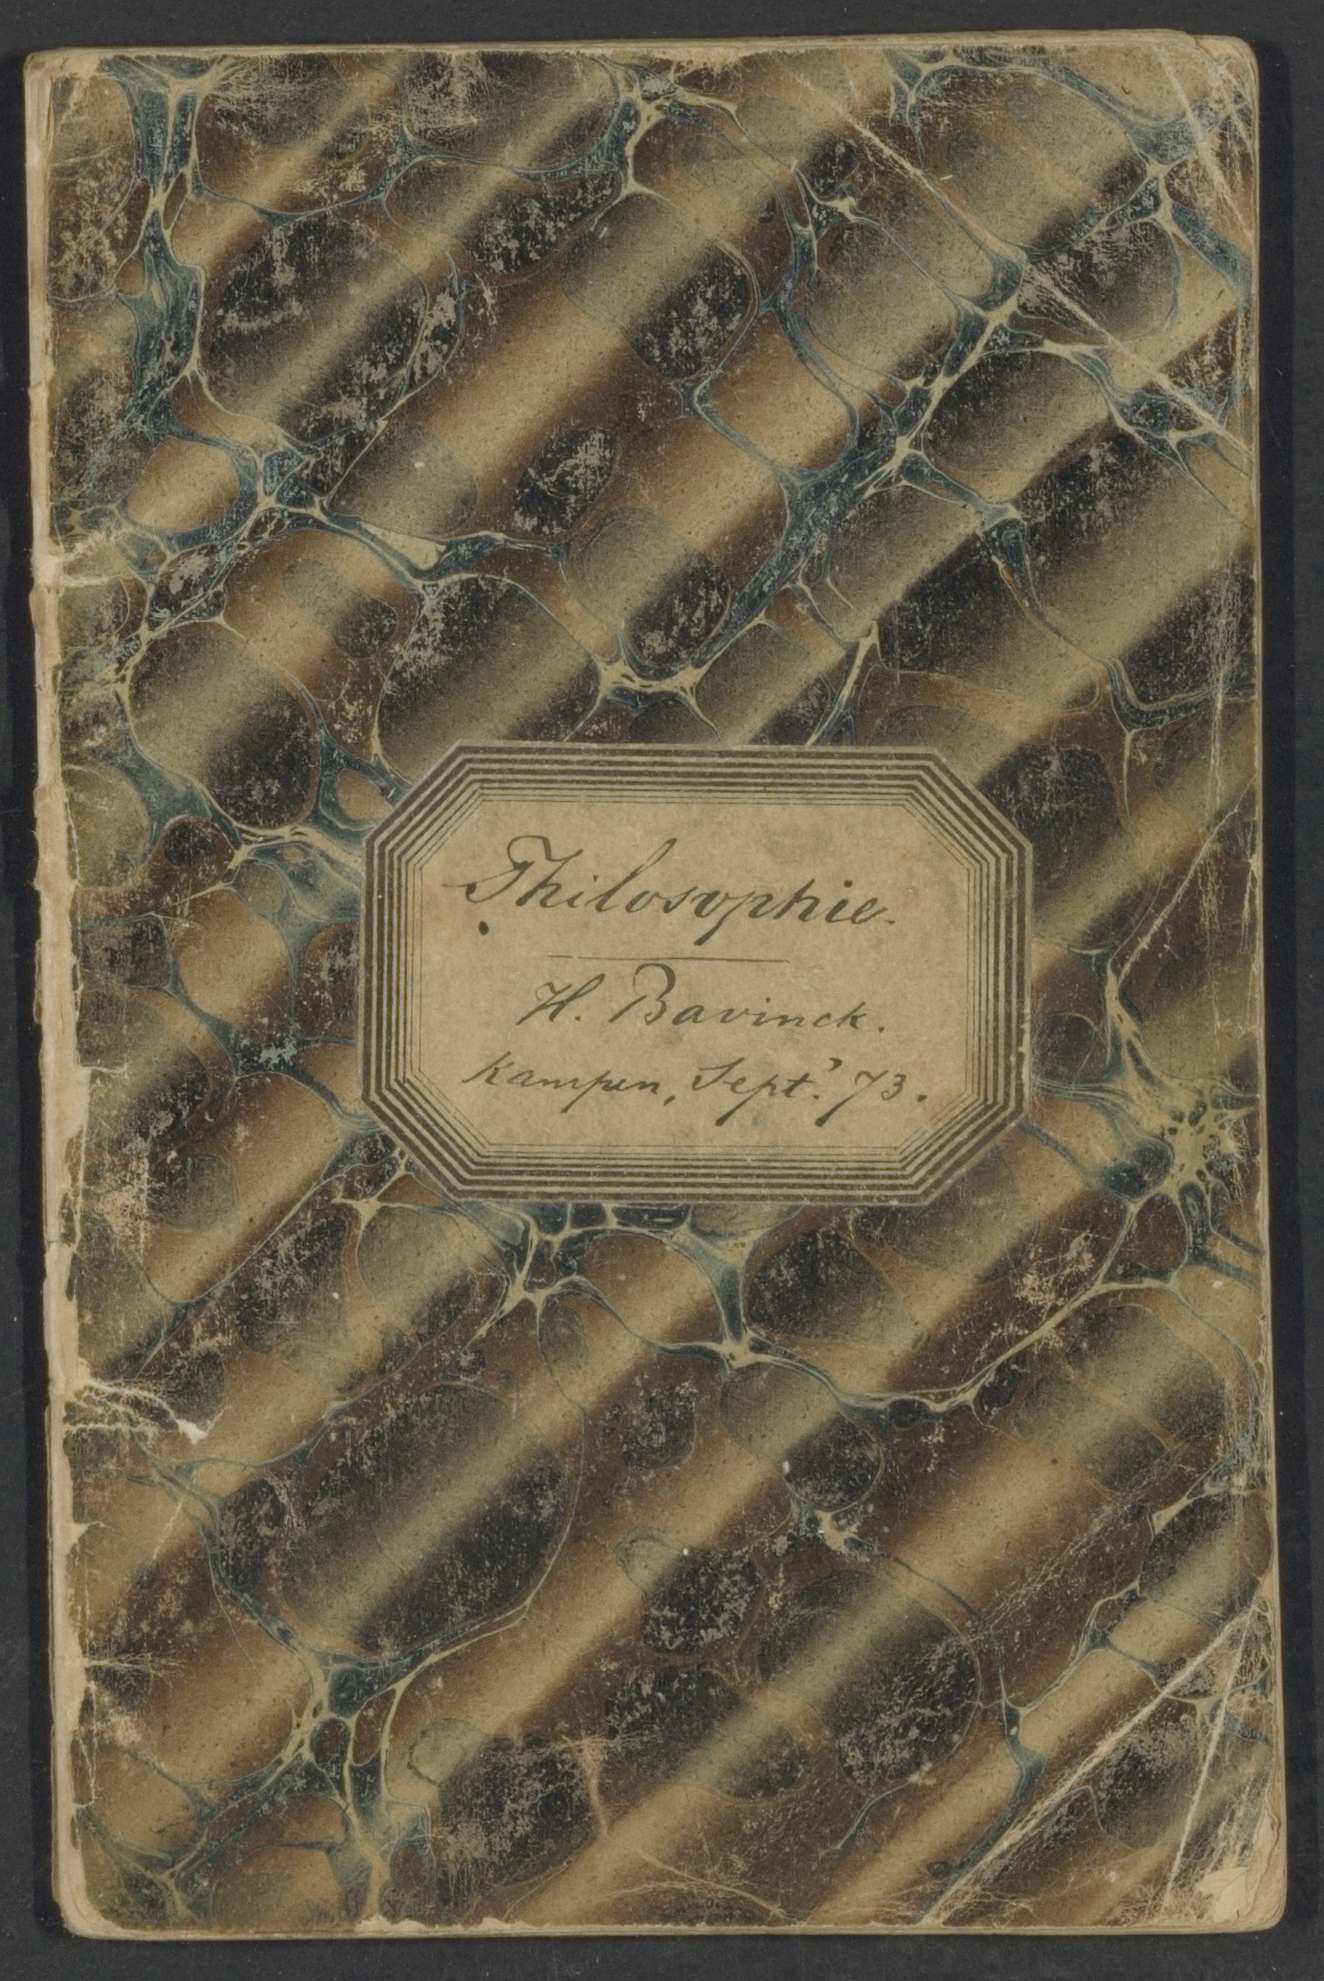 Philosophie.
H. Bavinck.
Kampen, Sept.' 73.